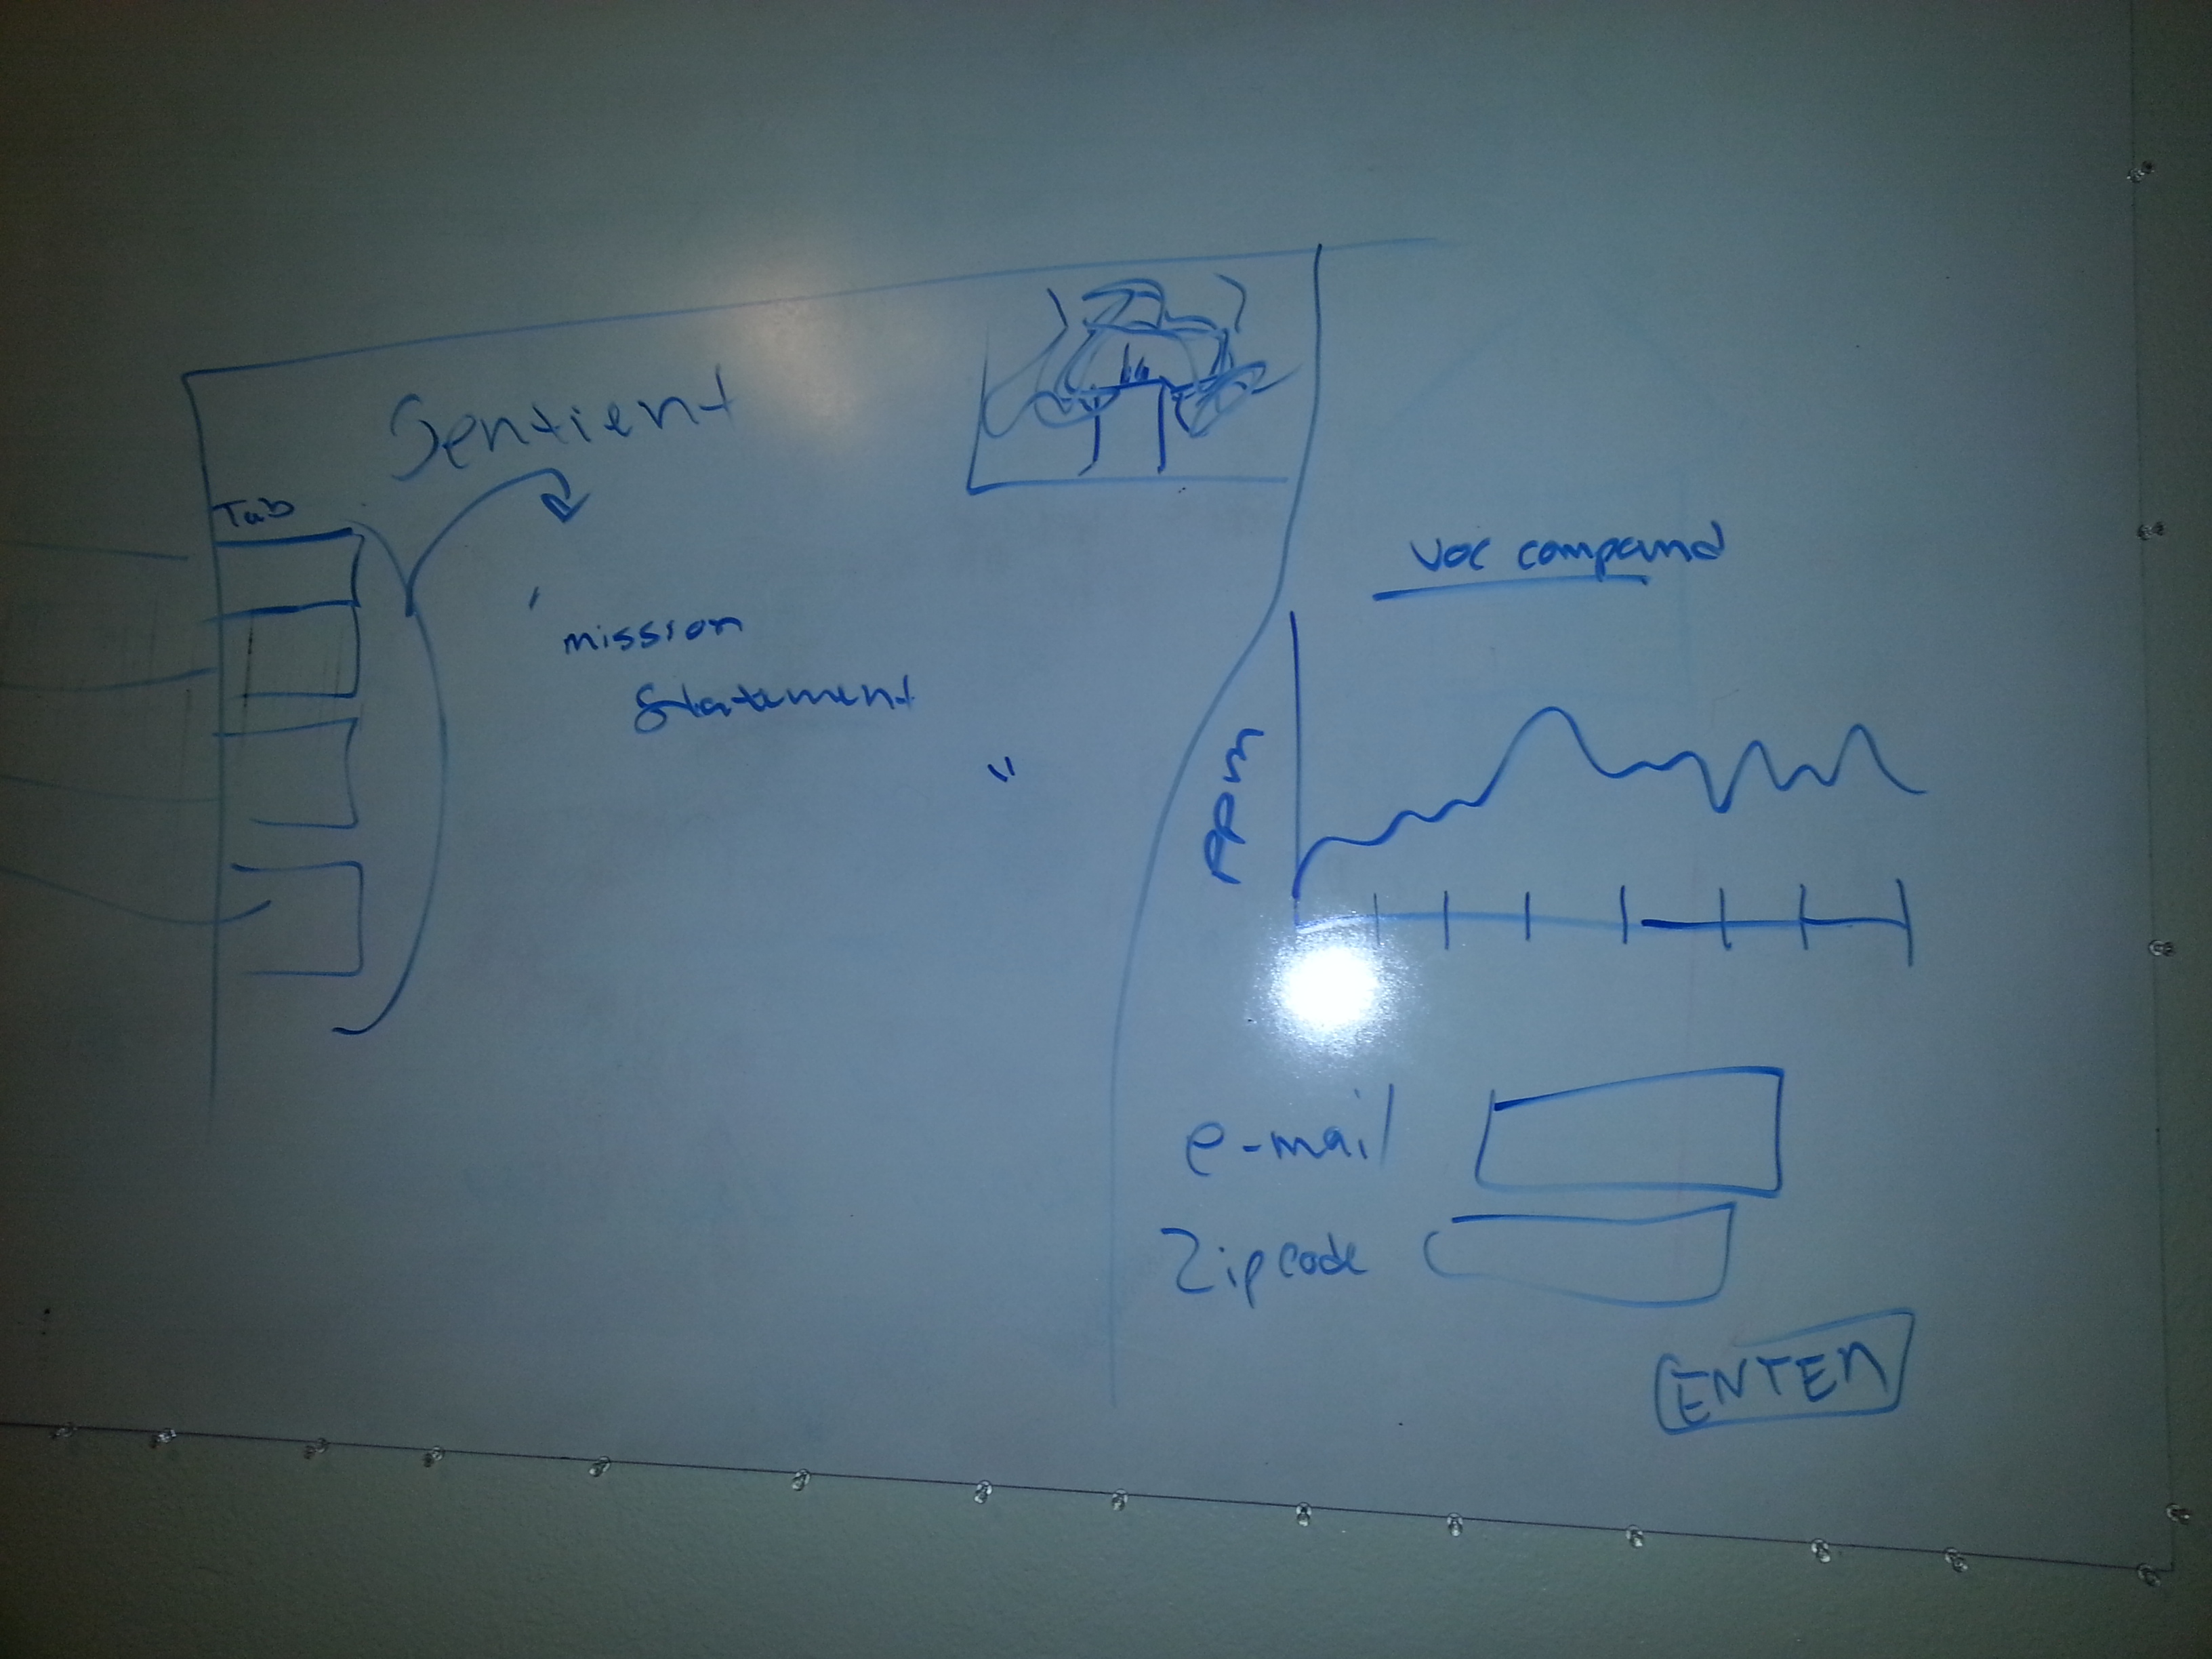 Sentient
Tab
mission
statement
"
VOC compound
ppm
e-mail
Zip code
ENTER